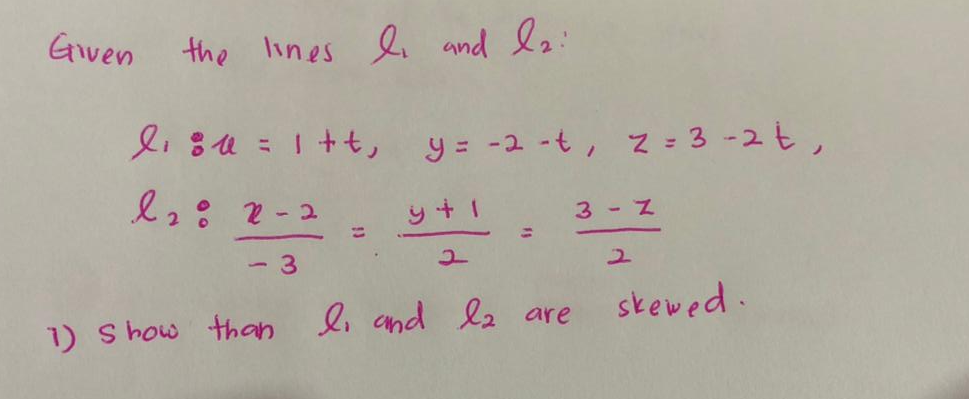 Given the lines l₁ and l₂:
l₁: x = 1 + t, y = -2 - t, z = 3 - 2t,
l₂: (x - 2)/(-3) = (y + 1)/2 = (3 - z)/2
1) Show than l₁ and l₂ are skewed.